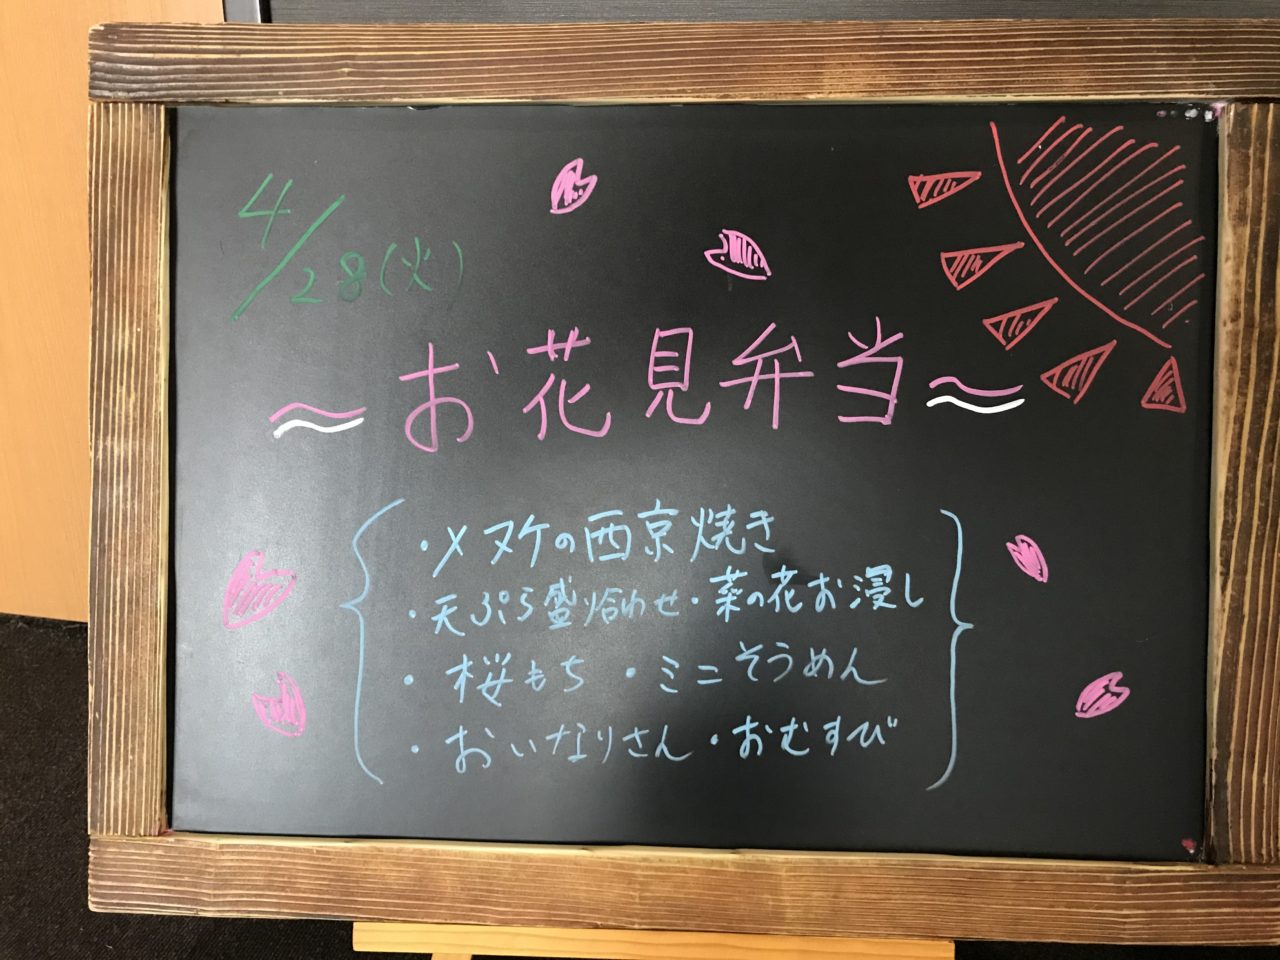 4/28(火)
～お花見弁当～
・メヌケの西京焼き
・天ぷら盛り合わせ・菜の花お浸し
・桜もち・ミニそうめん
・おいなりさん・おむすび